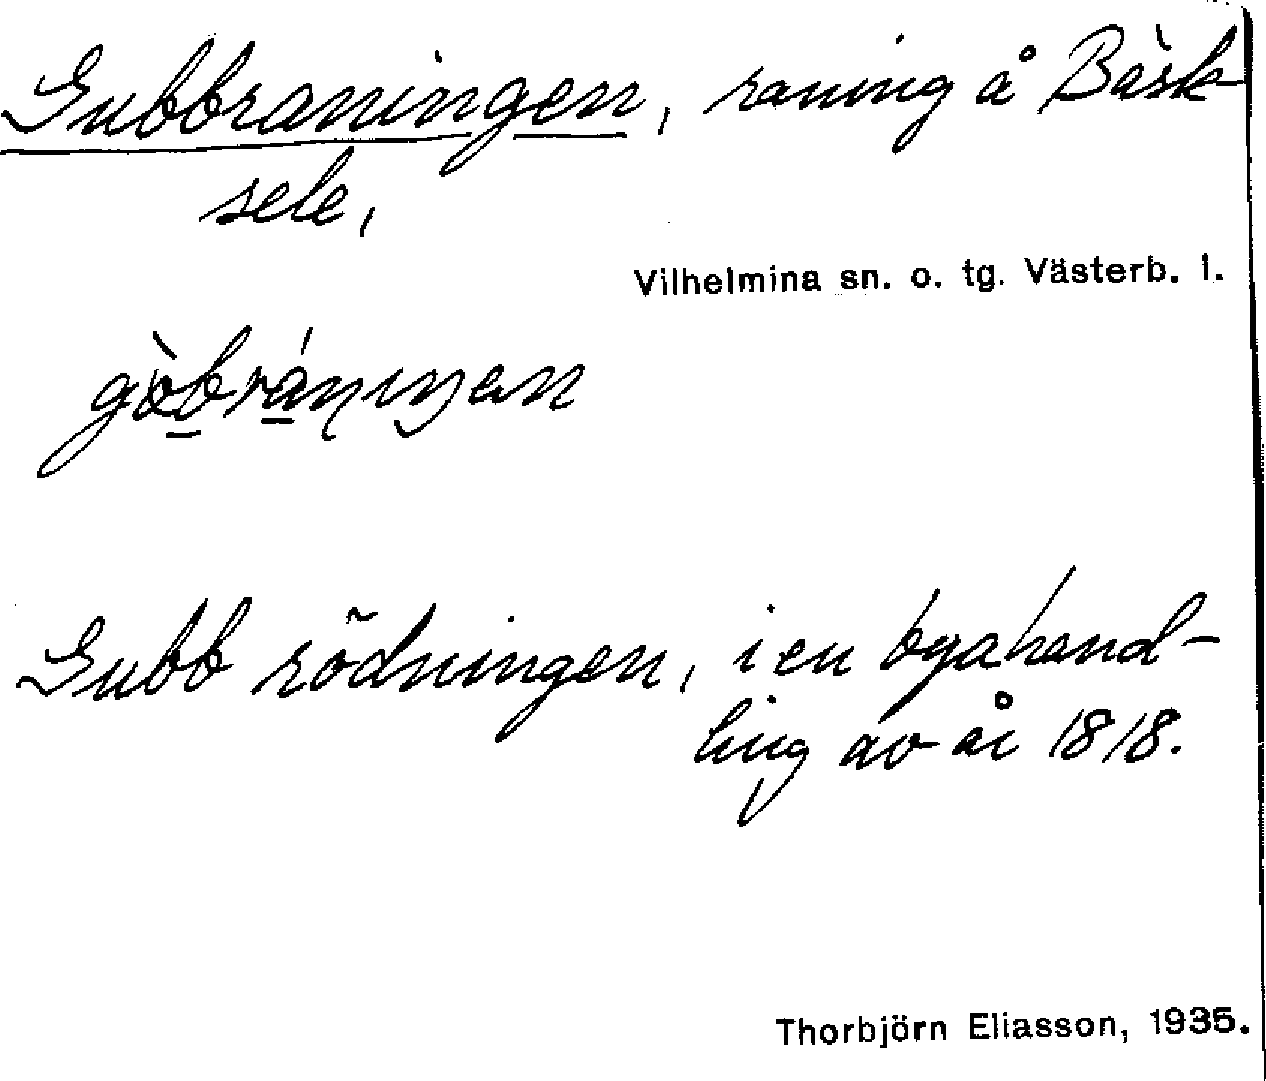 Gubbraningen, raning å Bäsk-
sele,
Vilhelmina sn. o. tg. Västerb. l.
gòbrániŋen
Gubb rödningen, i en byahand-
ling av år 1818.
Thorbjörn Eliasson, 1935.